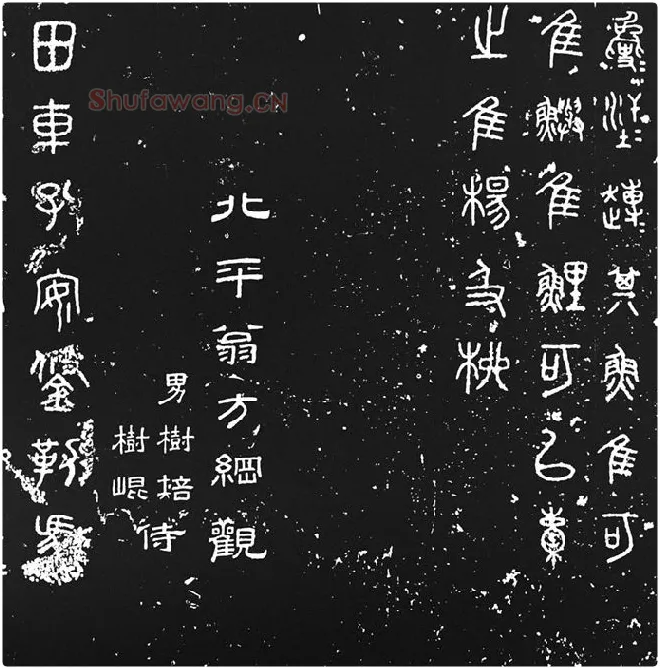 其魚隹可
隹鱮隹鯉可㠯橐
之隹楊及柳
北平翁方綱觀
男樹培
樹崐
侍
田車孔安鋚勒馬
Shufawang.CN